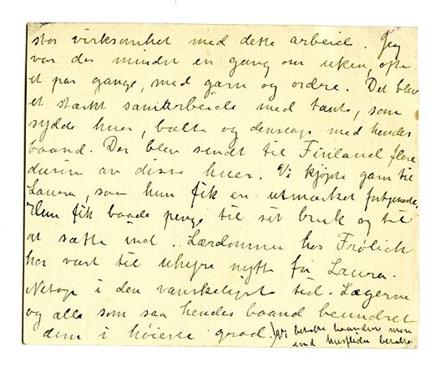 stor virksomhet med dette arbeid. Jeg
var der mindst en gang om uken, ofte
et par gange, med garn og ordre. Det blev
et stærkt samarbeide med tante, som
sydde huer, belte og denslags med hendes
baand. Der blev sendt til Finland flere
dusin av disse huer. Vi kjøpte garn til
Laura, saa hun fik en utmærket fortjeneste.
Hun fik baade penge til sit bruk og til
at sætte ind. Lærdommen hos Frölich
har vært til uhyre nytte for Laura.
Netop i den vanskeligste tid. Lægerne
og alle som saa hendes baand beundret
dem i høieste grad.) Vi betalte baandene mere
end husfliden betalte